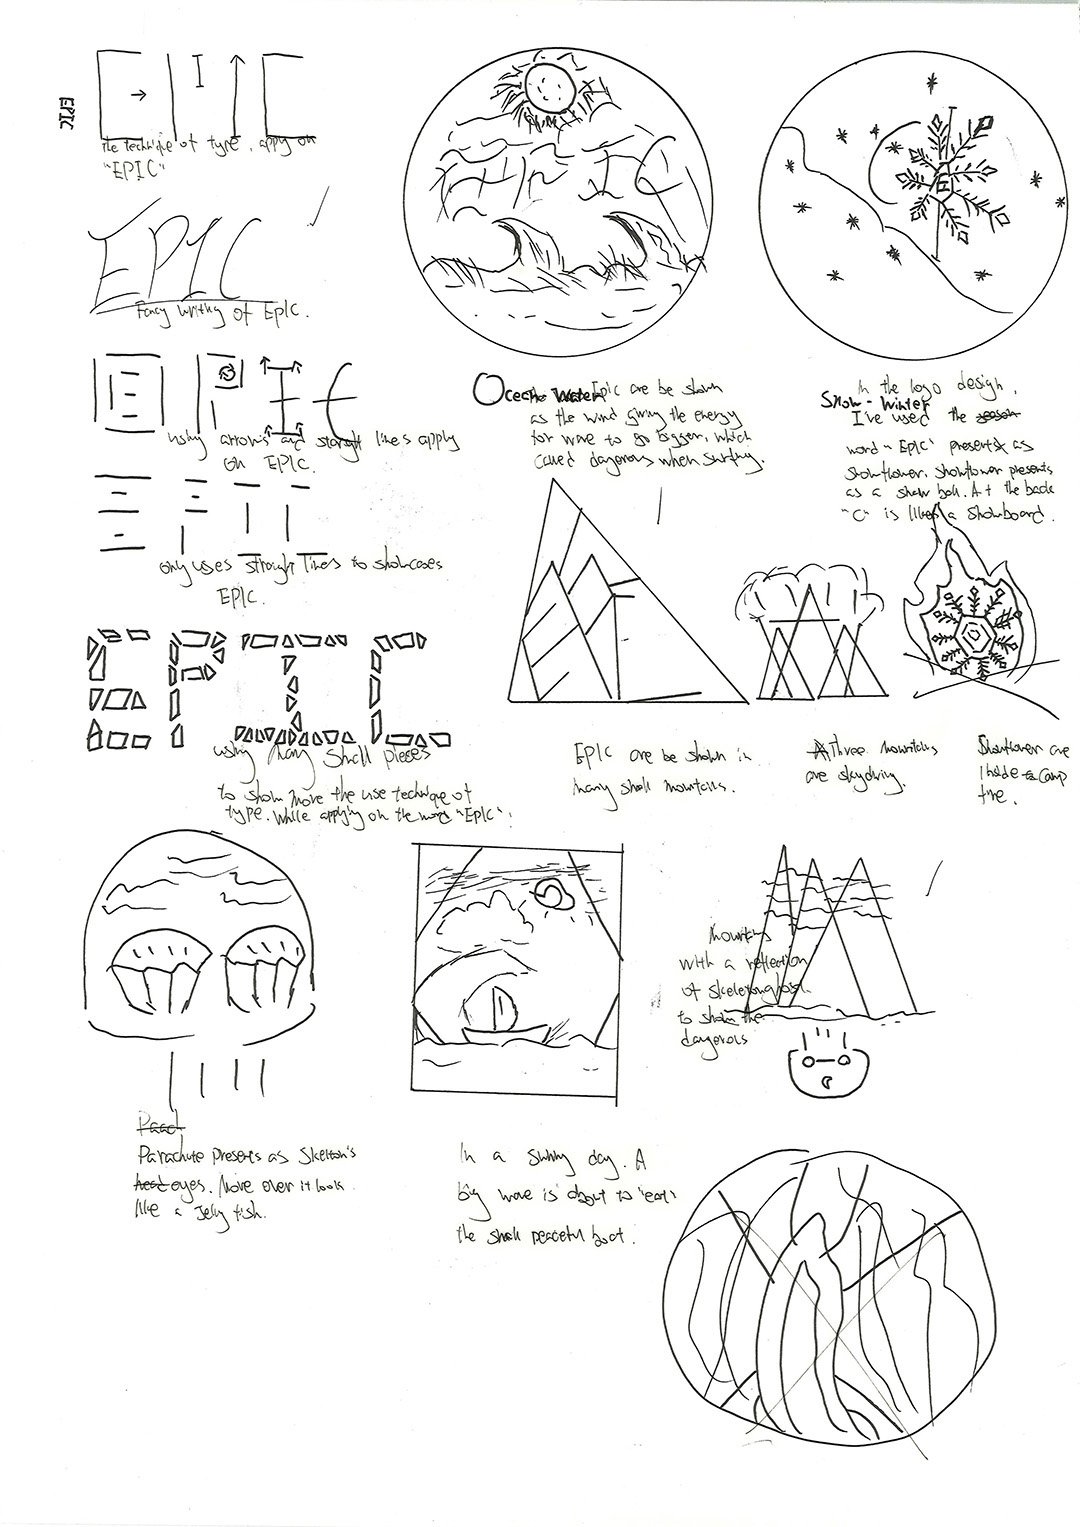 EPIC
The technique of type, apply on
"EPIC"
EPIC
Fancy writing of EPIC.
EPIC
using arrows and straight lines apply
on EPIC.
only uses straight lines to showcases
EPIC.
EPIC
using many small pieces
to show more the use technique of
type. While applying on the word "EPIC".
EPIC
Ocean Water Epic are be shown
as the wind giving the energy
for wave to go bigger, which
called dangerous when surfing.
In the logo design,
Snow-Winter
I've used the season
word "Epic" presents as
snowflower. Snowflower presents
as a snow ball. At the back
"C" is like a snowboard.
EPIC are be shown in
many small mountains.
A Three mountains
are skydiving.
Snowflower are
inside camp
fire.
Mountains
with a reflection
of skeleton
to show the
dangerous
Parachute presents as skelton's
head eyes. More over it look
like a Jelly fish.
In a sunny day. A
big wave is about to "eat"
the small peaceful boat.